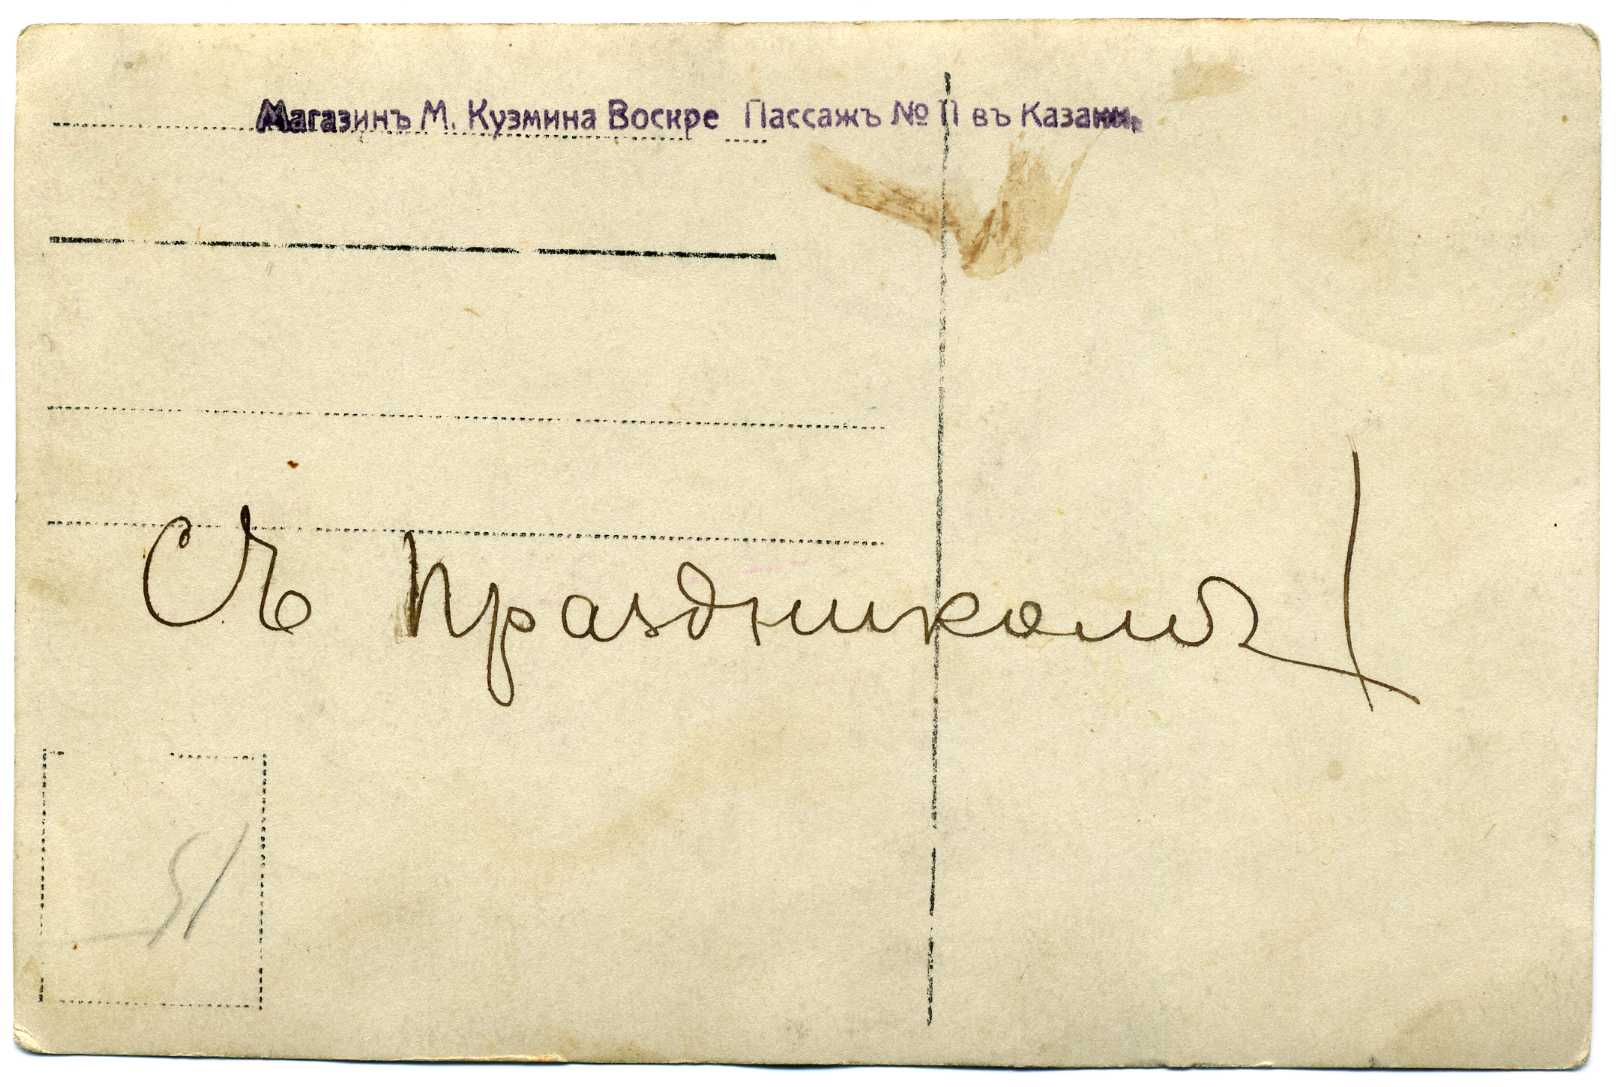 Магазинъ М. Кузмина Воскре Пассажъ № 11 въ Казани.
Съ праздникомъ!
51